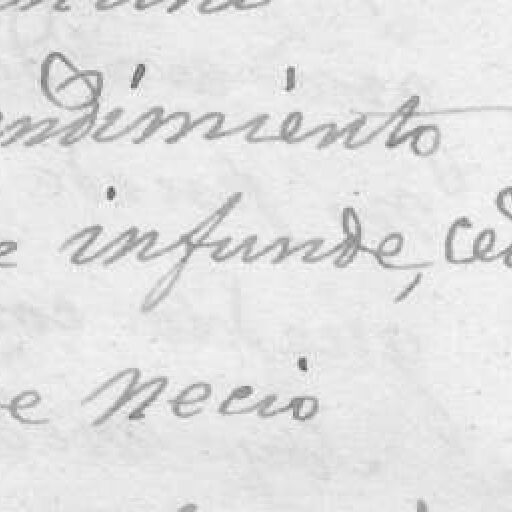 ndimiento
e infunde, ced
e necio